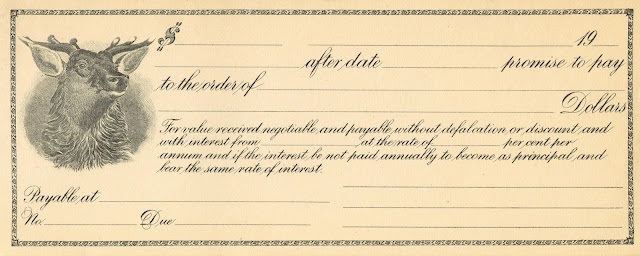 $ 19
after date promise to pay
to the order of
Dollars
For value received negotiable and payable without defalcation or discount and
with interest from at the rate of per cent per
annum and if the interest be not paid annually to become as principal, and
bear the same rate of interest.
Payable at
No. Due